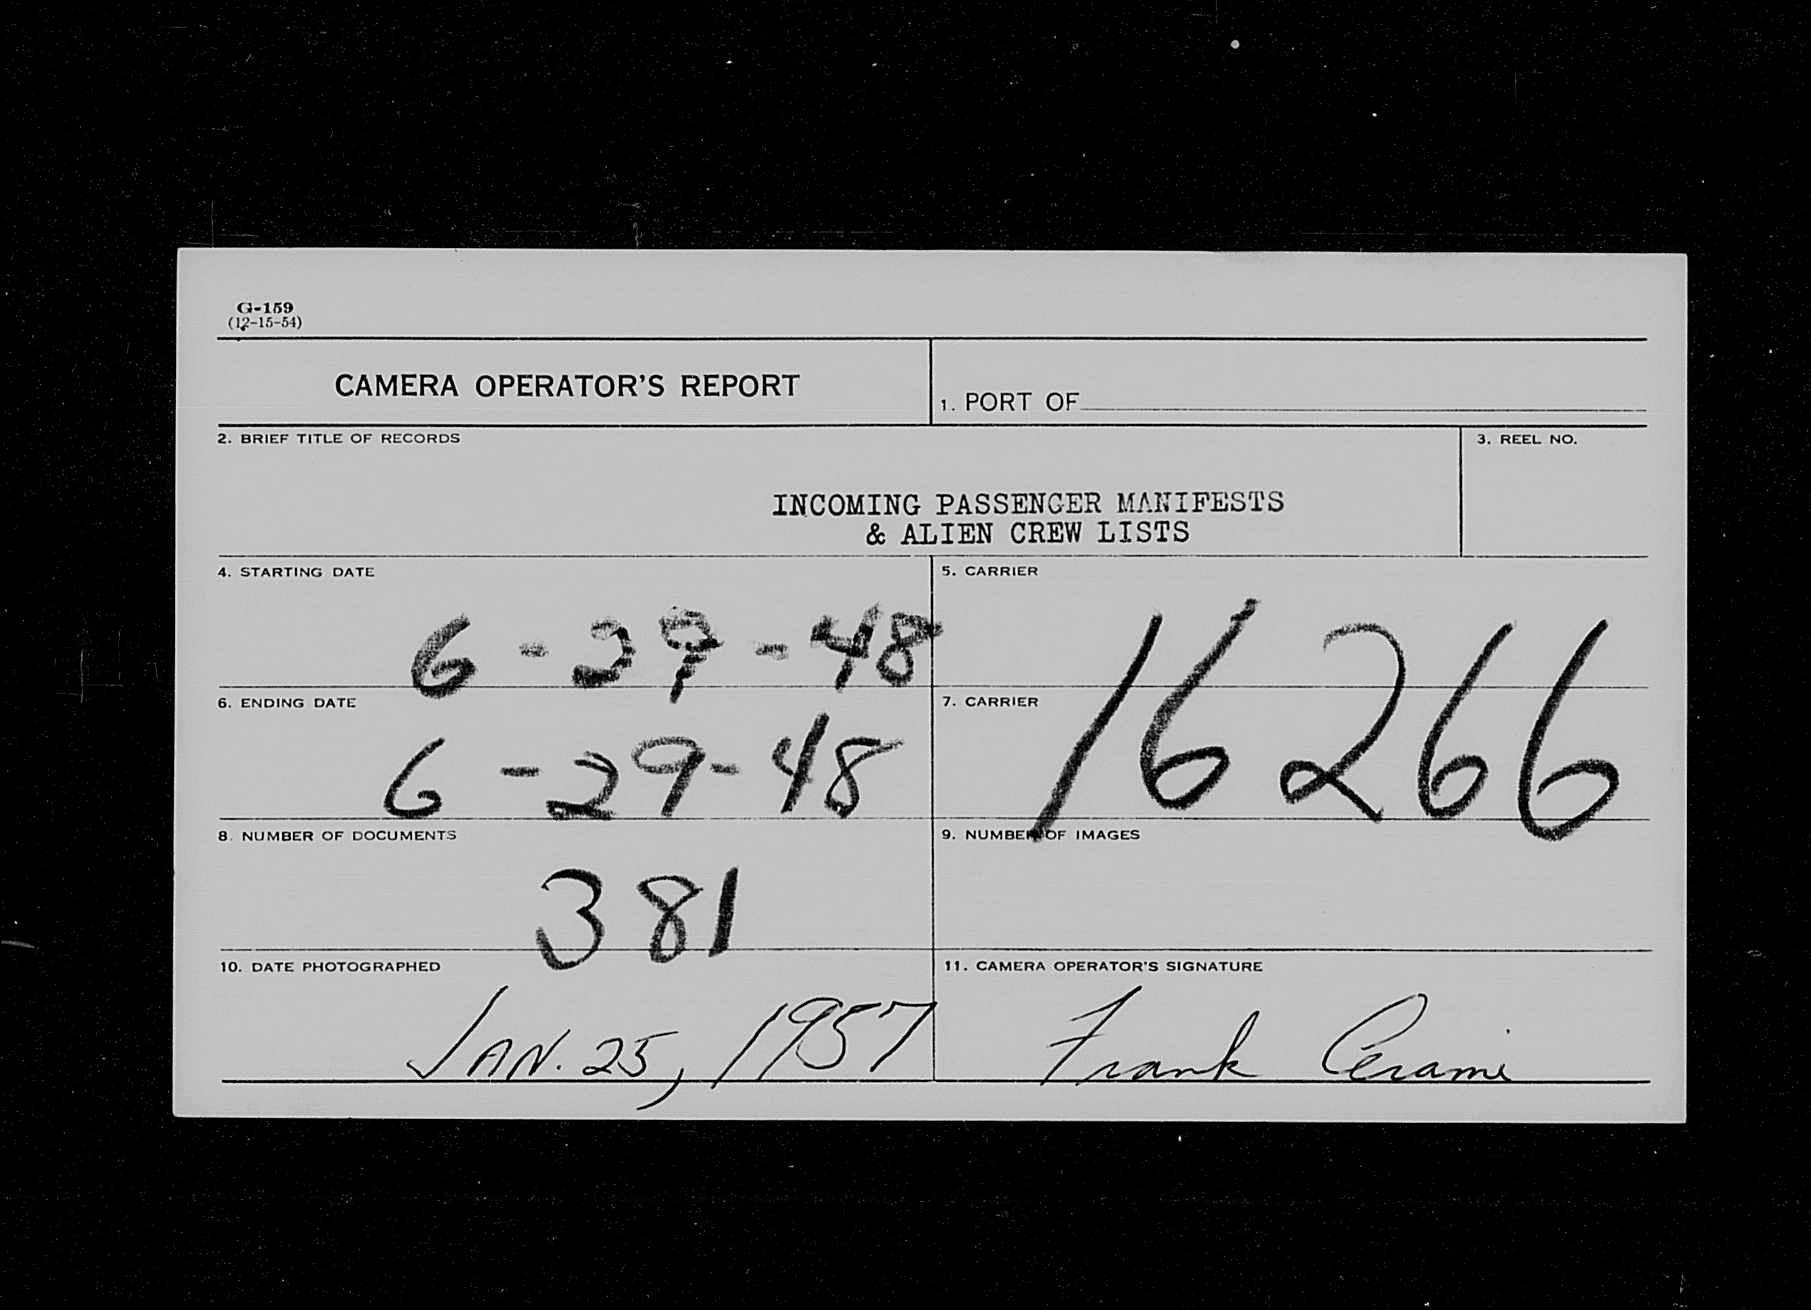 G-159
(12-15-54)
CAMERA OPERATOR'S REPORT
1. PORT OF
2. BRIEF TITLE OF RECORDS
3. REEL NO.
INCOMING PASSENGER MANIFESTS
& ALIEN CREW LISTS
4. STARTING DATE
6-29-48
5. CARRIER
16266
6. ENDING DATE
6-29-48
7. CARRIER
8. NUMBER OF DOCUMENTS
381
9. NUMBER OF IMAGES
10. DATE PHOTOGRAPHED
JAN. 25, 1957
11. CAMERA OPERATOR'S SIGNATURE
Frank Cerami